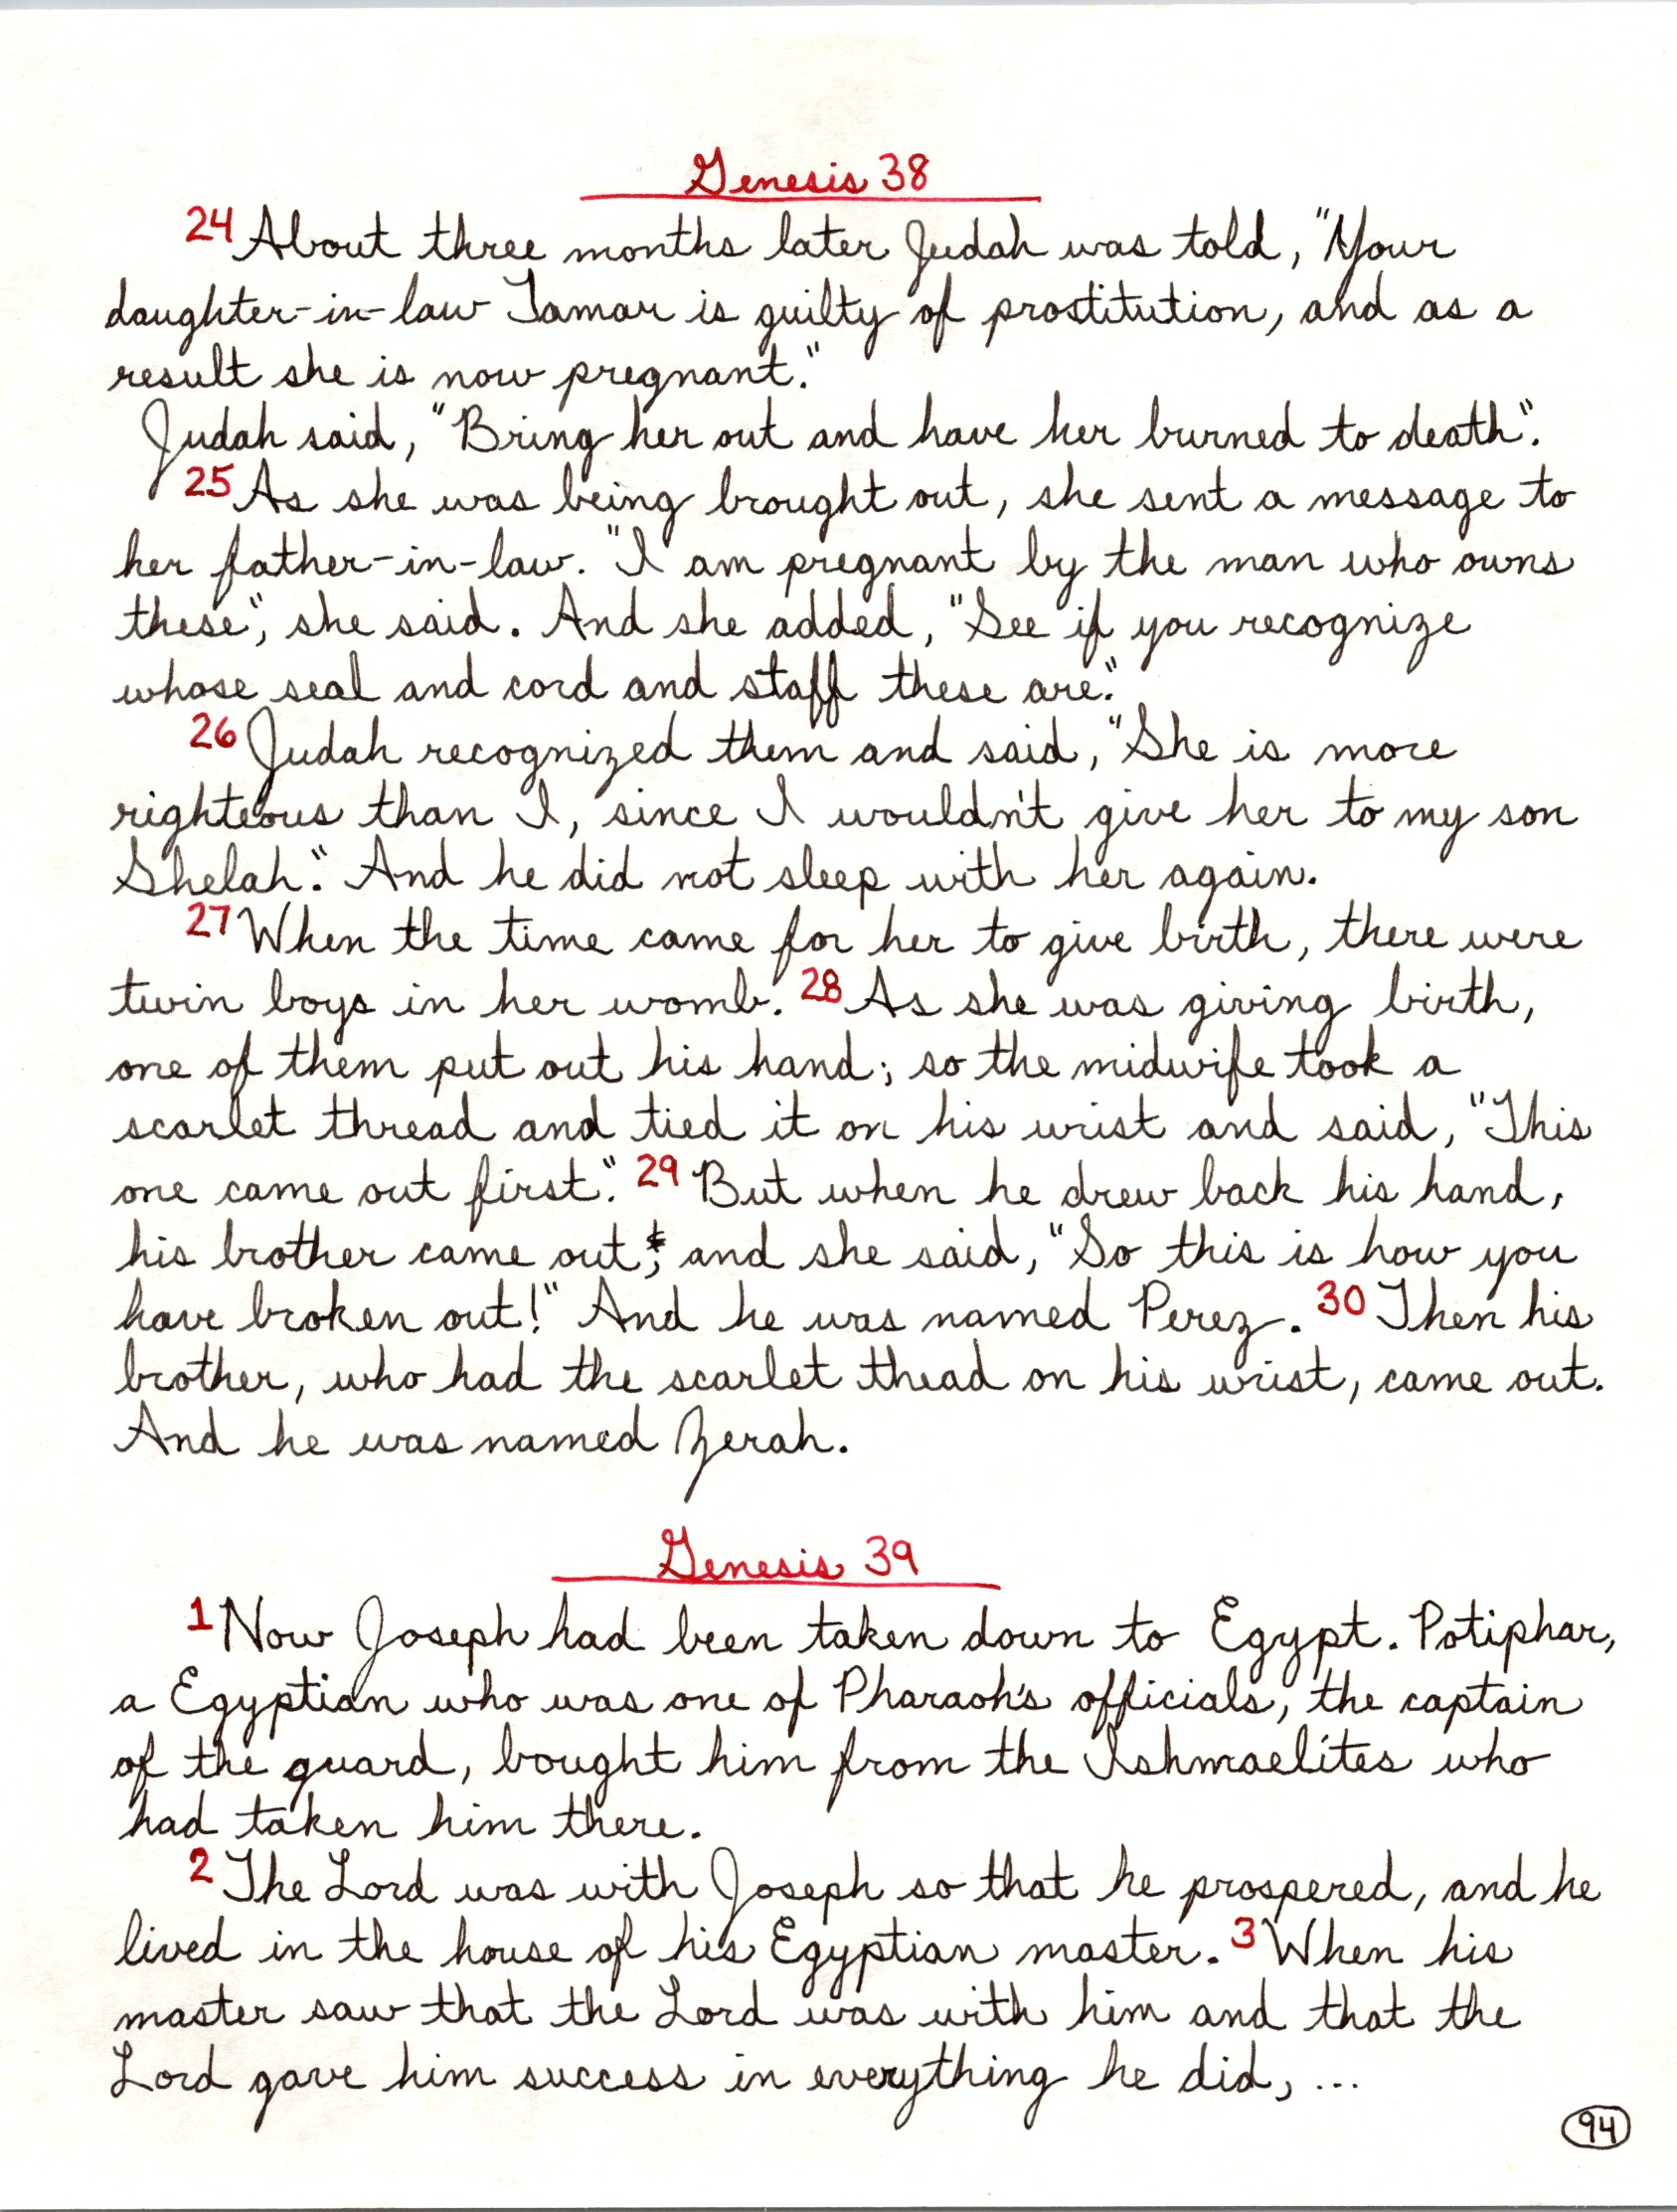 Genesis 38
24 About three months later Judah was told, "Your
daughter-in-law Tamar is guilty of prostitution, and as a
result she is now pregnant."
Judah said, "Bring her out and have her burned to death".
25 As she was being brought out, she sent a message to
her father-in-law. "I am pregnant by the man who owns
these", she said. And she added, "See if you recognize
whose seal and cord and staff these are."
26 Judah recognized them and said, "She is more
righteous than I, since I wouldn't give her to my son
Shelah." And he did not sleep with her again.
27 When the time came for her to give birth, there were
twin boys in her womb. 28 As she was giving birth,
one of them put out his hand; so the midwife took a
scarlet thread and tied it on his wrist and said, "This
one came out first." 29 But when he drew back his hand,
his brother came out, and she said, "So this is how you
have broken out!" And he was named Perez. 30 Then his
brother, who had the scarlet thead on his wrist, came out.
And he was named Zerah.
Genesis 39
1 Now Joseph had been taken down to Egypt. Potiphar,
a Egyptian who was one of Pharaoh's officials, the captain
of the guard, bought him from the Ishmaelites who
had taken him there.
2 The Lord was with Joseph so that he prospered, and he
lived in the house of his Egyptian master. 3 When his
master saw that the Lord was with him and that the
Lord gave him success in everything he did, ...
94